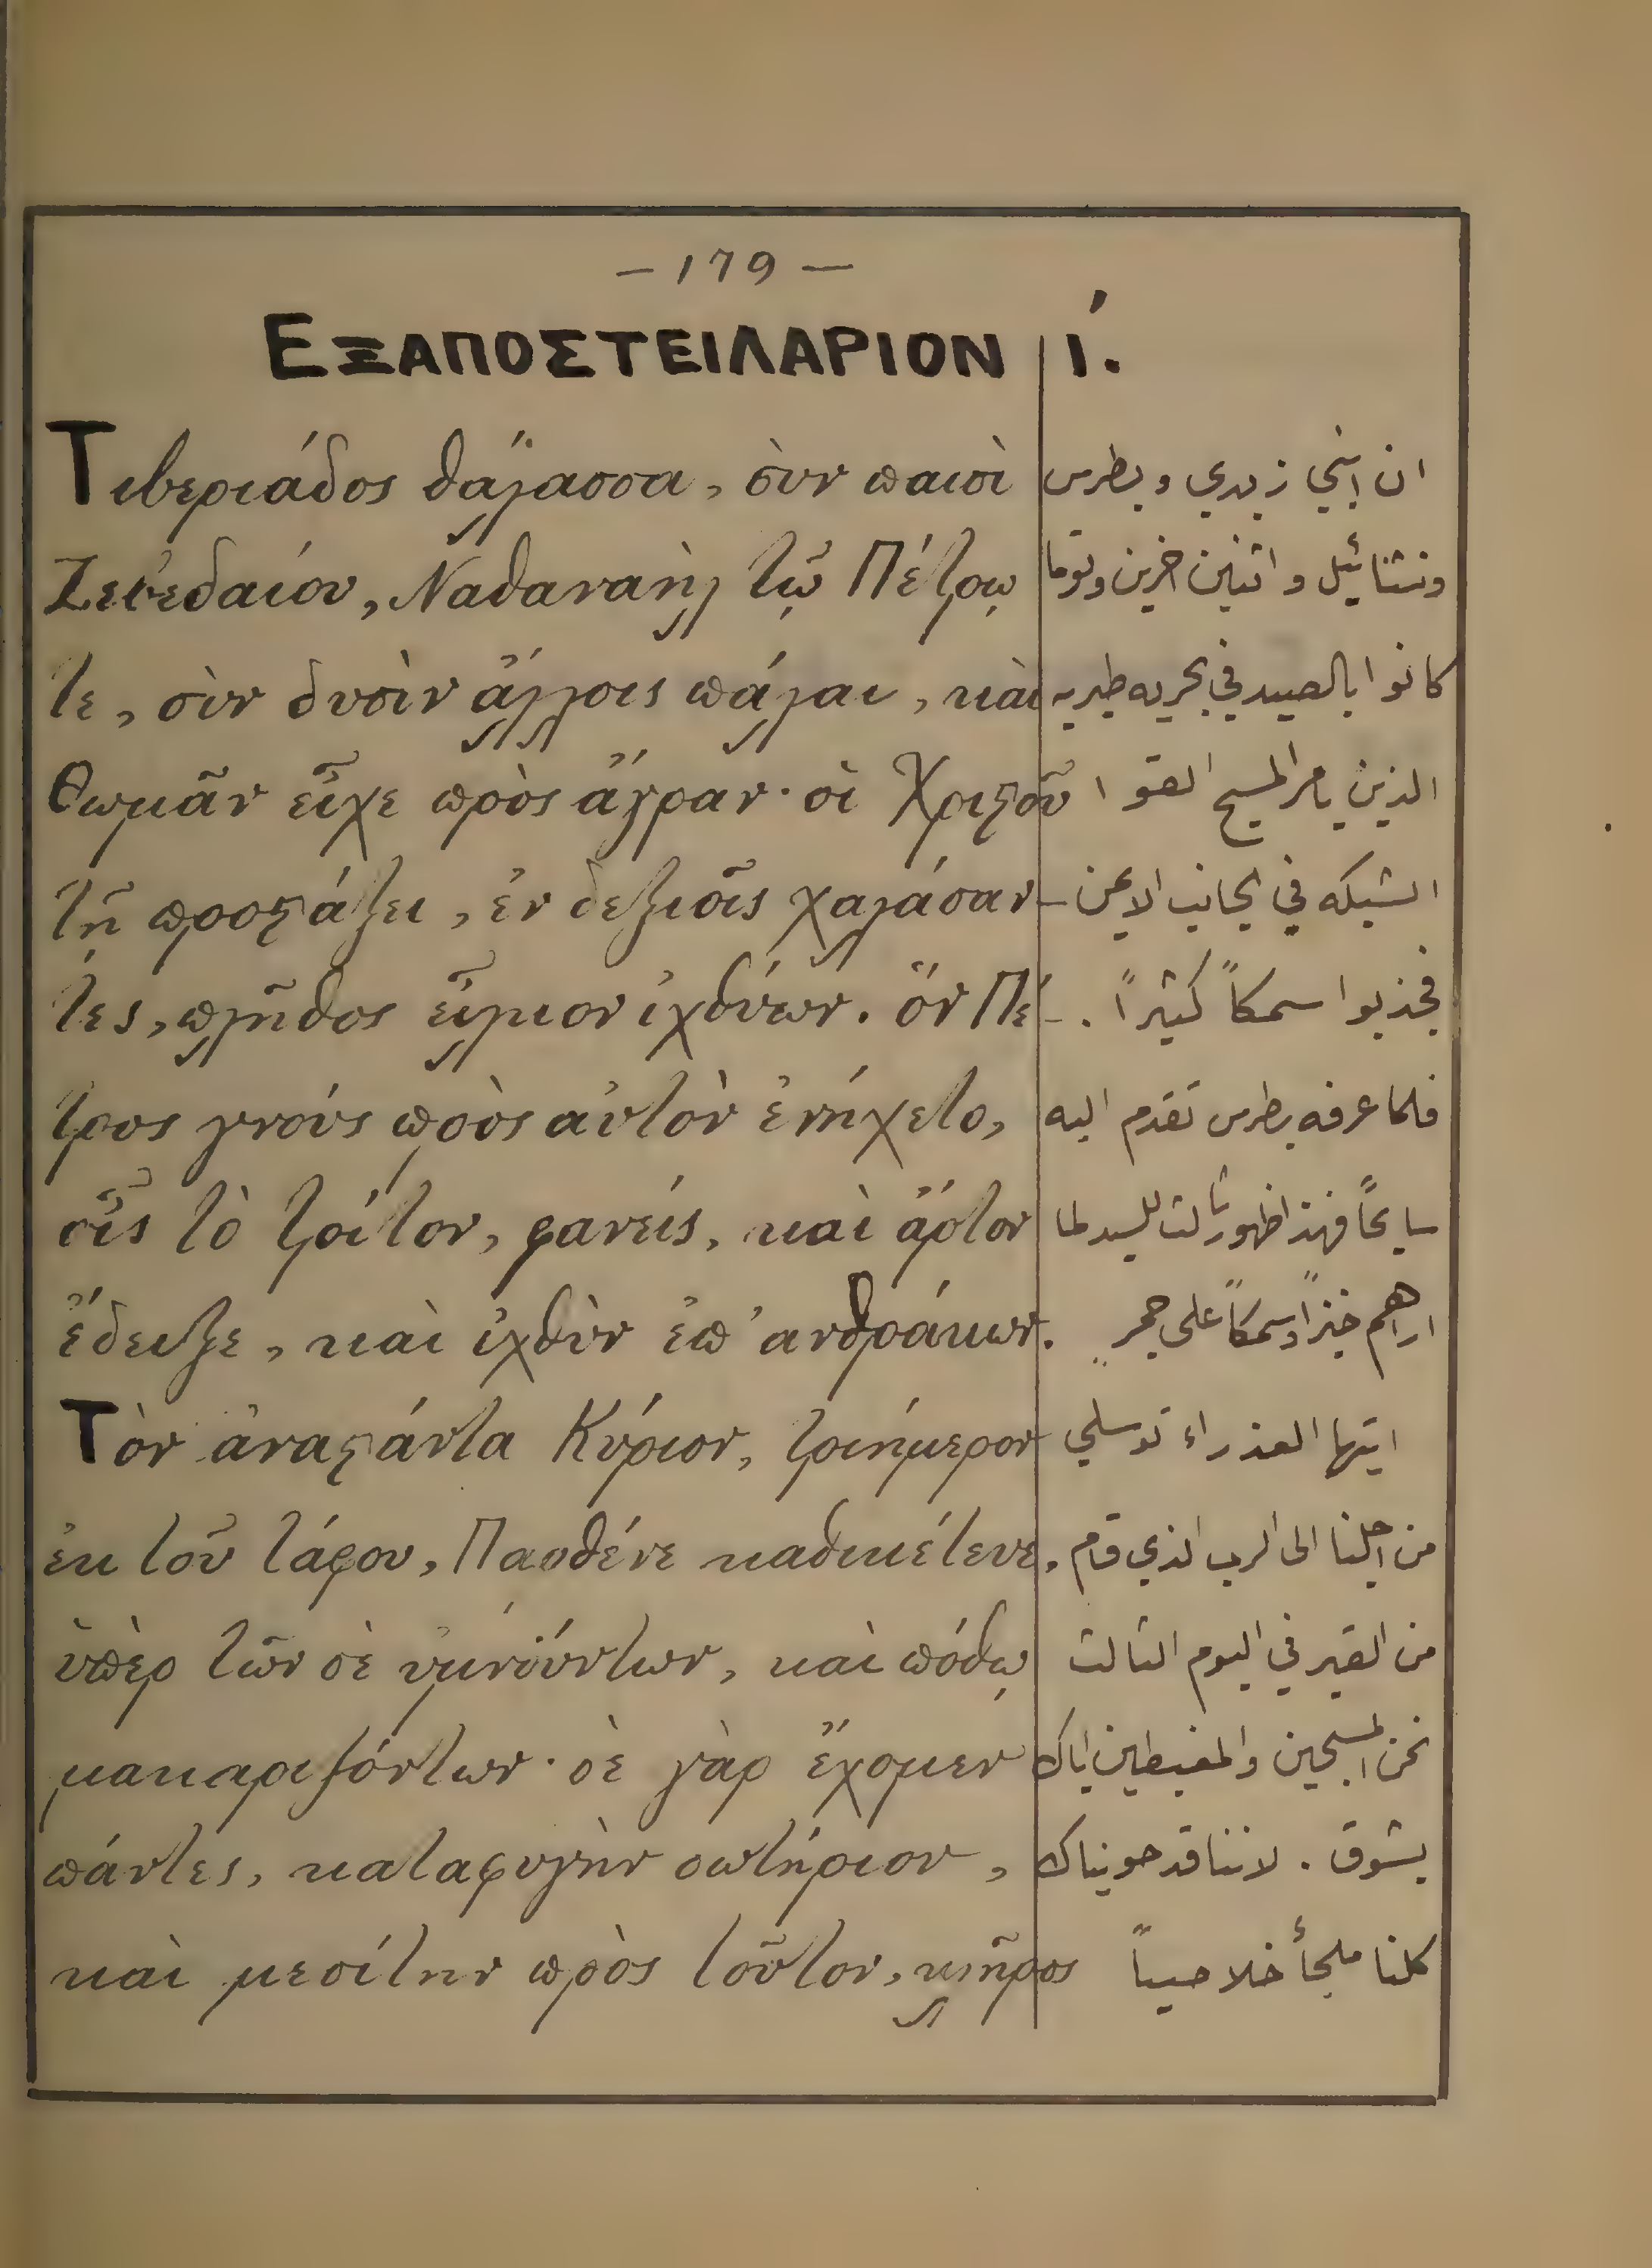 — 179 —
ΕΞΑΠΟΣΤΕΙΛΑΡΙΟΝ Ι΄.
Τιβεριάδος θάλασσα, σὺν παισὶ
Ζεβεδαίου, Ναθαναὴλ τῷ Πέτρῳ
τε, σὺν δυσὶν ἄλλοις πάλαι, καὶ
Θωμᾶν εἶχε πρὸς ἄγραν· οἱ Χριστοῦ
τῇ προστάξει, ἐν δεξιοῖς χαλάσαν-
τες, πλῆθος εἷλκον ἰχθύων. ὃν Πέ-
τρος γνούς πρὸς αὐτὸν ἐνήχετο,
οἷς τὸ τρίτον, φανείς, καὶ ἄρτον
ἔδειξε, καὶ ἰχθὺν ἐπ' ανθράκων.
Τὸν ἀναστάντα Κύριον, τριήμερον
ἐκ τοῦ τάφου, Παρθένε καθικέτευε,
ὑπὲρ τῶν σὲ ὑμνούντων, καὶ πόθῳ
μακαριζόντων· σὲ γὰρ ἔχομεν
πάντες, καταφυγὴν σωτήριον,
καὶ μεσίτην πρὸς τοῦτον, κλῆρος
ان ابني زبدي وبطرس
ونثنائيل واثنين اخرين وتوما
كانوا بالصيد في بحريه طبريه
الذين بامر المسيح القوا
الشبكه في الجانب الايمن
فجذبوا سمكاً كثيراً.
فلما عرفه بطرس تقدم اليه
سابحاً فهذا ظهور ثالث للسيد لما
اراهم خبزاً وسمكاً على جمر
ايتها العذراء توسلي
من اجلنا الى الرب الذي قام
من القبر في اليوم الثالث
نحن المسبحين والمغبطين اياك
بشوق. لاننا قد حويناك
كلنا ملجأ خلاصياً